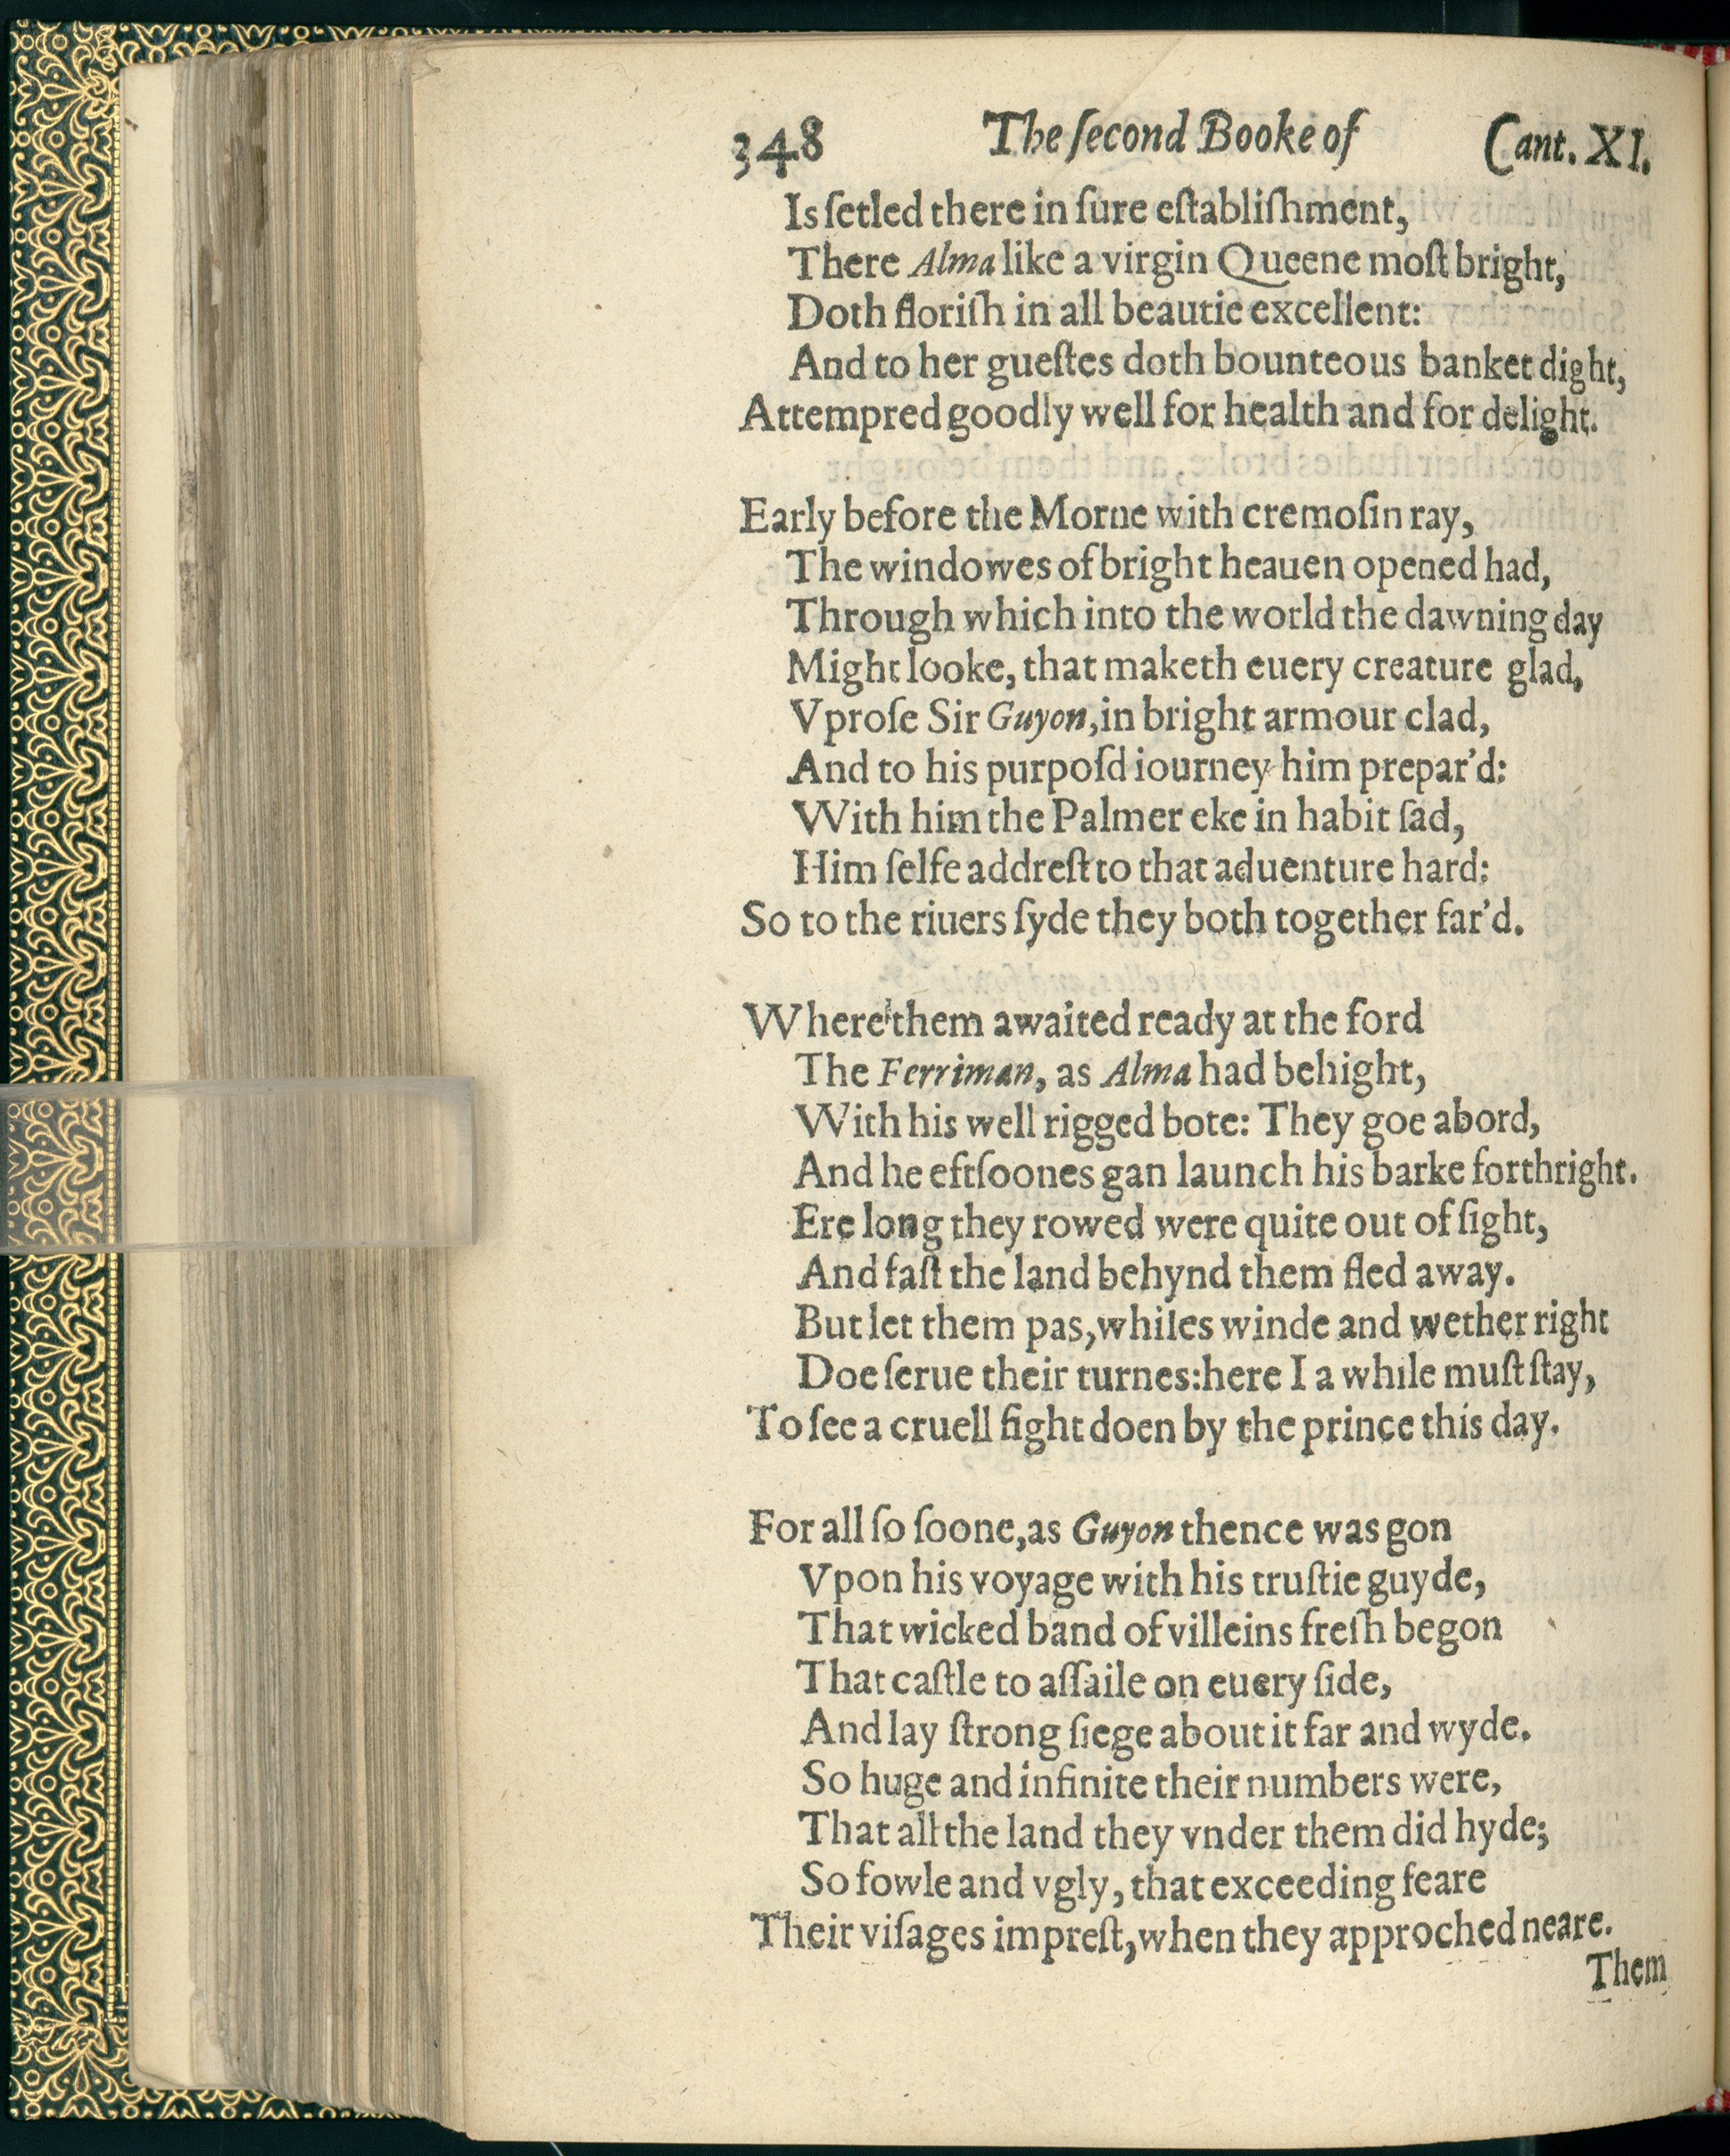 348 The ſecond Booke of Cant. XI.
Is ſetled there in ſure eſtabliſhment,
There Alma like a virgin Queene moſt bright,
Doth floriſh in all beautie excellent:
And to her gueſtes doth bounteous banket dight,
Attempred goodly well for health and for delight.
Early before the Morne with cremoſin ray,
The windowes of bright heauen opened had,
Through which into the world the dawning day
Might looke, that maketh euery creature glad,
Vproſe Sir Guyon, in bright armour clad,
And to his purpoſd iourney him prepar'd:
With him the Palmer eke in habit ſad,
Him ſelfe addreſt to that aduenture hard:
So to the riuers ſyde they both together far'd.
Where them awaited ready at the ford
The Ferriman, as Alma had behight,
With his well rigged bote: They goe abord,
And he eftſoones gan launch his barke forthright.
Ere long they rowed were quite out of ſight,
And faſt the land behynd them fled away.
But let them pas, whiles winde and wether right
Doe ſerue their turnes: here I a while muſt ſtay,
To ſee a cruell fight doen by the prince this day.
For all ſo ſoone, as Guyon thence was gon
Vpon his voyage with his truſtie guyde,
That wicked band of villeins freſh begon
That caſtle to aſſaile on euery ſide,
And lay ſtrong ſiege about it far and wyde.
So huge and infinite their numbers were,
That all the land they vnder them did hyde;
So fowle and vgly, that exceeding feare
Their viſages impreſt, when they approched neare.
Them